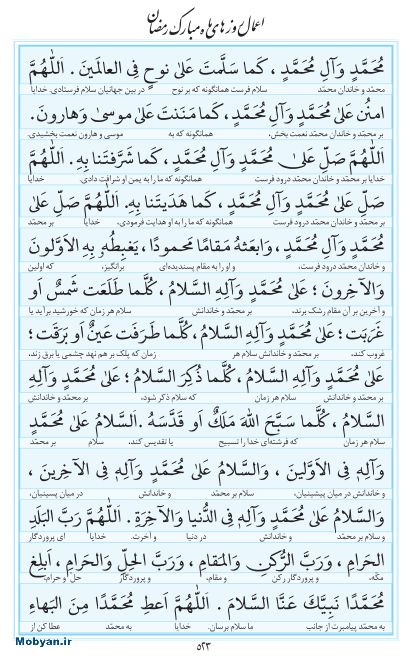 اعمال روزهای ماه مبارک رمضان
مُحَمَّدٍ وَآلِ مُحَمَّدٍ ، کَما سَلَّمتَ عَلیٰ نوحٍ فِی العالَمینَ . اَللّٰهُمَّ
محمّد و خاندان محمّد سلام فرست همانگونه که بر نوح در بین جهانیان سلام فرستادی. خدایا
امنُن عَلیٰ مُحَمَّدٍ وَآلِ مُحَمَّدٍ ، کَما مَنَنتَ عَلیٰ موسیٰ وَهارونَ .
بر محمّد و خاندان محمّد نعمت بخش، همانگونه که به موسی و هارون نعمت بخشیدی.
اَللّٰهُمَّ صَلِّ عَلیٰ مُحَمَّدٍ وَآلِ مُحَمَّدٍ ، کَما شَرَّفتَنا بِهِ . اَللّٰهُمَّ
خدایا بر محمّد و خاندان محمّد درود فرست همانگونه که ما را به یمن او شرافت دادی. خدایا
صَلِّ عَلیٰ مُحَمَّدٍ وَآلِ مُحَمَّدٍ ، کَما هَدَیتَنا بِهِ. اَللّٰهُمَّ صَلِّ عَلیٰ
بر محمّد و خاندان محمّد درود فرست همانگونه که ما را به او هدایت فرمودی. خدایا بر محمّد
مُحَمَّدٍ وَآلِ مُحَمَّدٍ ، وَابعَثهُ مَقامًا مَحمودًا ، یَغبِطُهُ بِهِ الاَوَّلونَ
و خاندان محمّد درود فرست، و او را به مقام پسندیده‌ای برانگیز، که اولین
وَالآخِرونَ ؛ عَلیٰ مُحَمَّدٍ وَآلِهِ السَّلامُ ، کُلَّما طَلَعَت شَمسٌ اَو
و آخرین بر آن مقام رشک برند، بر محمّد و خاندانش سلام هر زمان که خورشید برآید یا
غَرَبَت ؛ عَلیٰ مُحَمَّدٍ وَآلِهِ السَّلامُ ، کُلَّما طَرَفَت عَینٌ اَو بَرَقَت ؛
غروب کند، بر محمّد و خاندانش سلام هر زمان که پلک بر هم نهد چشمی یا برق زند،
عَلیٰ مُحَمَّدٍ وَآلِهِ السَّلامُ ، کُلَّما ذُکِرَ السَّلامُ ؛ عَلیٰ مُحَمَّدٍ وَآلِهِ
بر محمّد و خاندانش سلام هر زمان که سلام ذکر شود، بر محمّد و خاندانش
السَّلامُ ، کُلَّما سَبَّحَ اللّٰهَ مَلَکٌ اَو قَدَّسَهُ . اَلسَّلامُ عَلیٰ مُحَمَّدٍ
سلام هر زمان که فرشته‌ای خدا را تسبیح یا تقدیس کند، سلام بر محمّد
وَآلِهِ فِی الاَوَّلینَ ، وَالسَّلامُ عَلیٰ مُحَمَّدٍ وَآلِهِ فِی الآخِرینَ ،
و خاندانش در میان پیشینیان، سلام بر محمّد و خاندانش در میان پسینیان،
وَالسَّلامُ عَلیٰ مُحَمَّدٍ وَآلِهِ فِی الدُّنیا وَالآخِرَةِ . اَللّٰهُمَّ رَبَّ البَلَدِ
و سلام بر محمّد و خاندانش در دنیا و آخرت. خدایا ای پروردگار
الحَرامِ ، وَرَبَّ الرُّکنِ وَالمَقامِ ، وَرَبَّ الحِلِّ وَالحَرامِ ، اَبلِغ
مکّه، و پروردگار رکن و مقام، و پروردگار حل و حرام،
مُحَمَّدًا نَبِیَّکَ عَنَّا السَّلامَ . اَللّٰهُمَّ اَعطِ مُحَمَّدًا مِنَ البَهاءِ
به محمّد پیامبرت از جانب ما سلام برسان. خدایا به محمّد عطا کن از
Mobyan.ir
۵۲۳